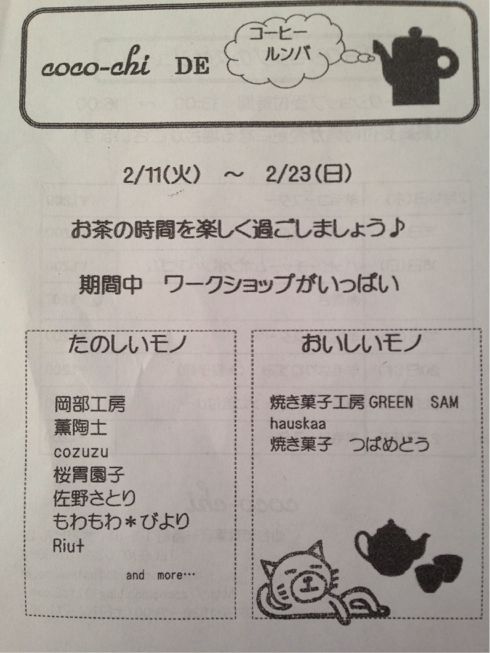 coco-chi DE
コーヒー
ルンバ
2/11(火) ～ 2/23(日)
お茶の時間を楽しく過ごしましょう♪
期間中 ワークショップがいっぱい
たのしいモノ
岡部工房
薫陶士
cozuzu
桜胃園子
佐野さとり
もわもわ＊びより
Riut
and more…
おいしいモノ
焼き菓子工房GREEN SAM
hauskaa
焼き菓子 つばめどう